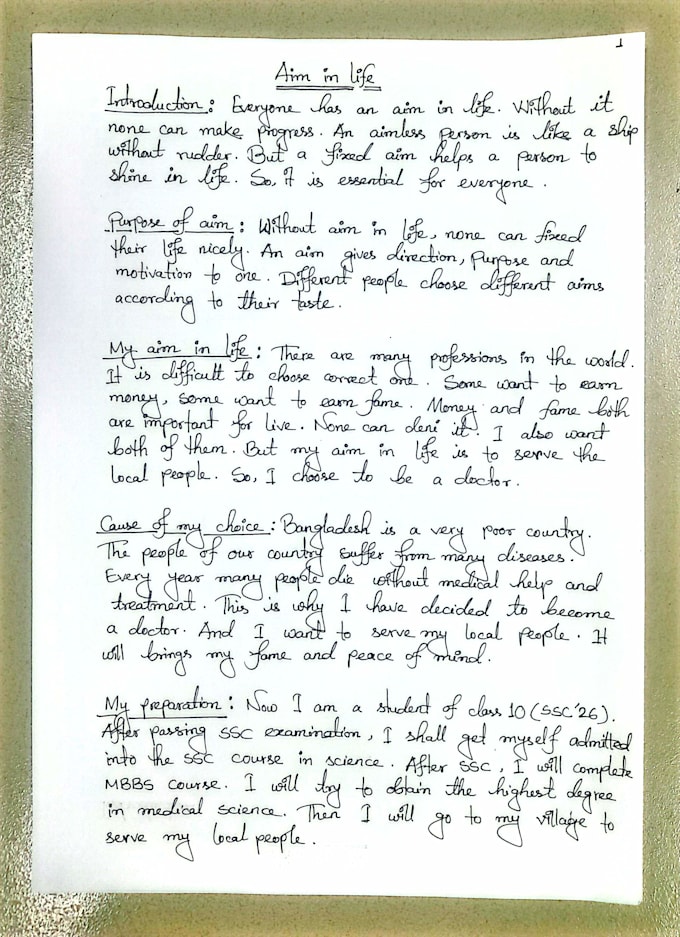 1
Aim in life
Introduction: Everyone has an aim in life. Without it
none can make progress. An aimless person is like a ship
without rudder. But a fixed aim helps a person to
shine in life. So, it is essential for everyone.
Purpose of aim: Without aim in life, none can fixed
their life nicely. An aim gives direction, purpose and
motivation to one. Different people choose different aims
according to their taste.
My aim in life: There are many professions in the world.
It is difficult to choose correct one. Some want to earn
money, some want to earn fame. Money and fame both
are important for live. None can deni it. I also want
both of them. But my aim in life is to serve the
local people. So, I choose to be a doctor.
Cause of my choice: Bangladesh is a very poor country.
The people of our country suffer from many diseases.
Every year many people die without medical help and
treatment. This is why I have decided to become
a doctor. And I want to serve my local people. It
will brings my fame and peace of mind.
My preparation: Now I am a student of class 10 (SSC'26).
After passing SSC examination, I shall get myself admitted
into the SSC course in science. After SSC, I will complete
MBBS course. I will try to obtain the highest degree
in medical science. Then I will go to my village to
serve my local people.